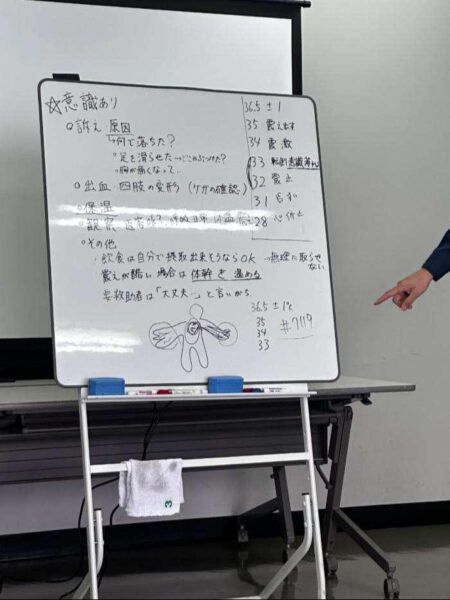 ☆意識あり
○訴え 原因
↳何で落ちた?
○足を滑らせた→どこかぶつけた?
○胸が痛くなって…
○出血・四肢の変形(ケガの確認)
○保温
○観察
○その他
・飲食は自分で摂取出来そうならOK →無理に取らせない
震えが酷い場合は体幹を温める
要救助者は「大丈夫…」と言いがち
36.5 ± 1
35 震え出す
34 震 激
33
32 震 止
31
28 心 停止
36.5 ± 1℃
35
34
33
#7119